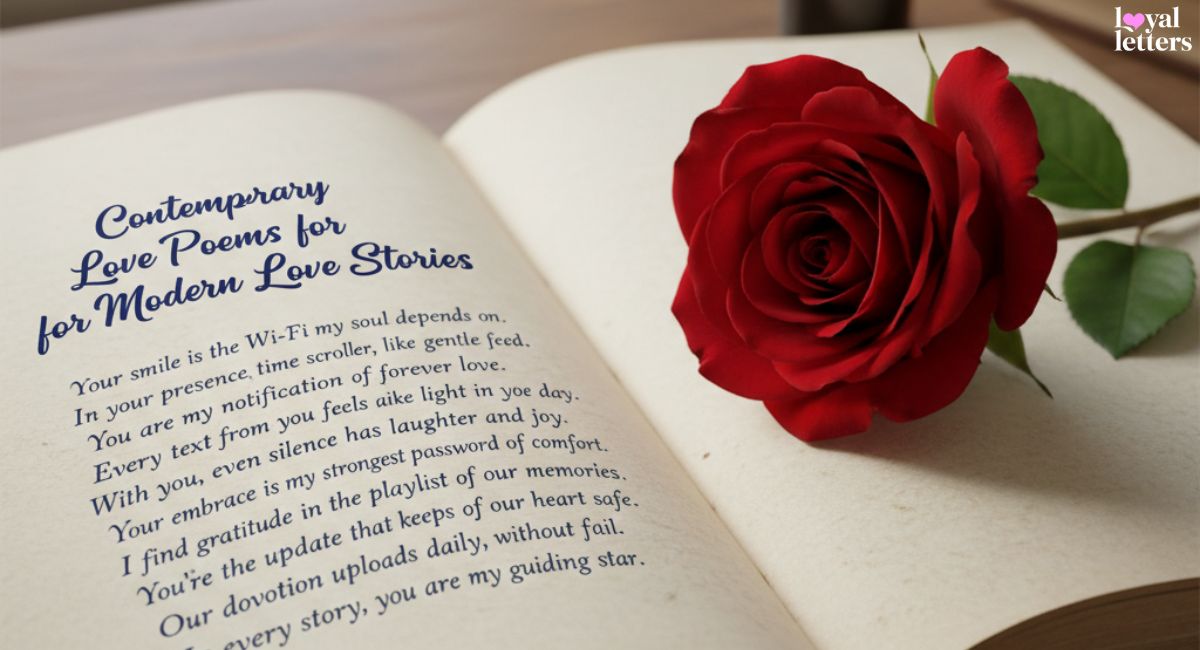 loyal
letters
Contemprary
Love Poems for
for Modern Love Stories
Your smile is the Wi-Fi my soul depends on.
In your presence, time scroller, like gentle feed.
You are my notification of forever love.
Every text from you feels aike light in yoe day.
With you, even silence has laughter and joy.
Your embrace is my strongest password of comfort.
I find gratitude in the playlist of our memories.
You're the update that keeps of our heart safe.
Our dovotion uploads daily, without fail.
every story, you are my guiding star.